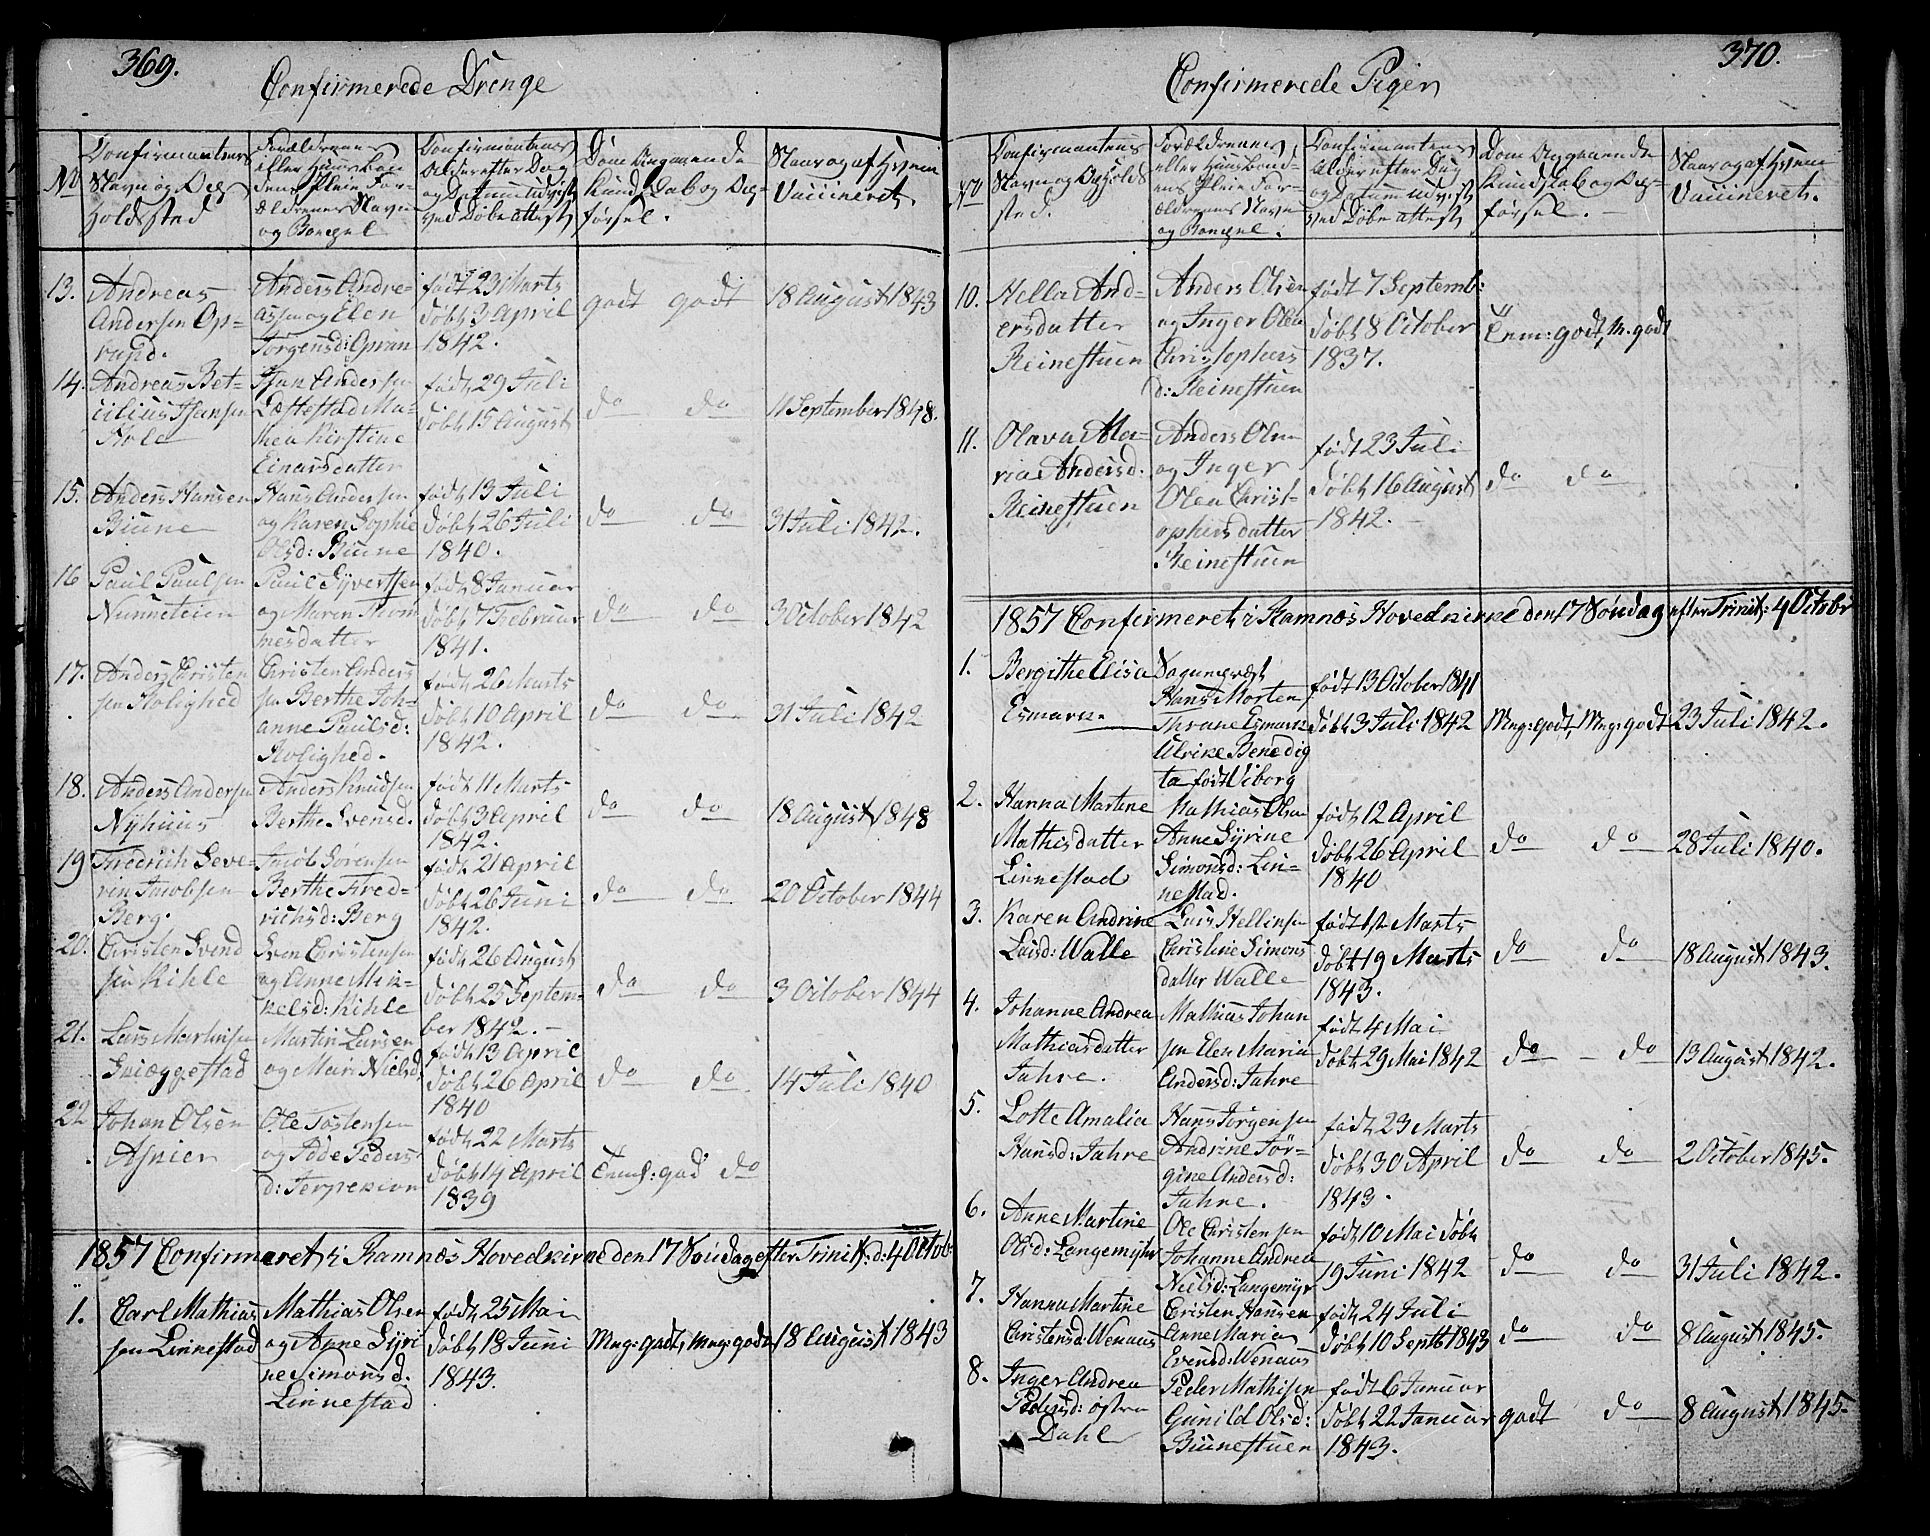 369.
Confirmerede Drenge
No
Confirmantens
Navn og Op-
holdssted
Forældrenes
eller Huusbon
dens, Pleie For-
ældrenes Navn
og Bopæl
Confirmantens
Alder efter Dag
og Datum udvist
ved Døbe attest
Dom Angaaende
Kundskab og Op-
førsel.
Naar og af Hvem
Vaccineret
13.
Andreas
Andersen Op-
rund.
Anders Andre-
assen og Elen
Jørgensd:
født 23 Marts
døbt 3 April
1842.
godt godt
18 August 1843
14.
Andreas Bet-
cilius Hansen
Hole
Hans Andersen
Løftestad Ma-
thea Kirstine
Einarsdatter
født 29 Juli
døbt 15 August
do do
11 September 1848.
15.
Anders Hansen
Biune
Hans Andersen
og Karen Sophie
Olsd: Biune
født 13 Juli
døbt 26 Juli
1840.
do do
31 Juli 1842.
16
Paul Paulsen
Nunneteien
Paul Syvertsen
og Maren Thom
mesdatter
født 8 Januar
døbt 7 Februar
1841.
do do
3 October 1842
17.
Anders Christen
sen Rolighed
Christen Anders
sen Berthe Joh-
anne Paulsd:
Rolighed.
født 26 Marts
døbt 10 April
1842.
do do
31 Juli 1842
18.
Anders Andersen
Nyhuus
Anders Knudsen
Berthe Svensd.
født 11 Marts
døbt 3 April
1842.
do do
18 August 1848
19
Fredrich Seve-
rin Jacobsen
Berg.
Jacob Sørensen
Berthe Fred-
richsd: Berg
født 21 April
døbt 26 Juni
1842.
do do
20 October 1844
20.
Christen Svend
sen Kihle
Sven Christensen
og Anne Mik-
kelsd: Kihle
født 26 August
døbt 25 Septem-
ber 1842.-
do do
3 October 1844
21.
Lars Martinsen
Snæggestad
Martin Larsen
og Mari Nielsd
født 13 April
døbt 26 April
1840
do do
14 Juli 1840
22
Johan Olsen
Asnier
Ole Tostensen
og Peders
d:
født 22 Marts
døbt 14 April
1839
Temf: god do
1857 Confirmeret i Ramnæs Hovedkirke den 17 Søndag efter Trinit: d: 4 Octob
1.
Carl Mathias
sen Linnestad
Mathias Olsen
og Anne Syri
ne Simonsd.
Linnestad
født 25 Mai
døbt 18 Juni
1843.
Mng: godt, mng: godt
18 August 1843
370.
Confirmerede Piger
No
Confirmantens
Navn og Opholds
sted.
Forældrenes
eller Huusbond-
ens Pleie For-
ældrenes Navn
og Bopæl.
Confirmantens
Alder efter Dag
og Datum udvist
ved Døbe attest
Dom Angaaende
Kundskab og Op-
førsel.-
Naar og af Hvem
Vaccineret.
10.
Hella And-
ersdatter
Reinestuen
Anders Olsen
og Inger Olea
Christophers
d: Reinestuen
født 7 Septemb:
døbt 8 October
1837.
Tem: godt, M. godt
11.
Olava Ma-
ria Andersd:
Reinestuen
Anders Olsen
og Inger
Olea Christ-
ophersdatter
Reinestuen
født 23 Juli
døbt 16 August
1842.-
do do
1857 Confirmeret i Ramnæs Hovedkirke den 17 Søndag efter Trinit: 4 Octobr
1.
Bergithe Elisa
Esmark.
Hans Morten
Thrane Esmark
Ulrike Benedig
ta født Wiborg
født 13 October 1841
døbt 3 Juli 1842
Mng: godt, Mng: godt
23 Juli 1842.
2.
Hanna Martine
Mathisdatter
Linnestad
Mathias Olsen
Anne Syrine
Simonsd: Lin-
nestad.
født 12 April
døbt 26 April
1840
do do
28 Juli 1840.
3.
Karen Andrine
Larsd: Walle
Lars Hellinsen
Christine Simons
datter Walle
født 1st Marts
døbt 19 Marts
1843.
do do
18 August 1843.
4.
Johanne Andrea
Mathiasdatter
Jahre.
Mathias Johan
sen Elen Maria
Andersd: Jahre
født 4 Mai
døbt 29 Mai 1842
do - do
13 August 1842.
5.
Lotte Amalia
Hansd: Jahre
Hans Jørgensen
Andrine Jør-
gine Andersd:
Jahre.
født 23 Marts
døbt 30 April
1843.
do do
2 October 1845.
6.
Anne Martine
Olsd: Langemyhr
Ole Christensen
Johanne Andrea
Nielsd: Langemyr
født 10 Mai døbt
19 Juni 1842
do do
31 Juli 1842.
7.
Hanna Martine
Christensd: Wenaas
Christen Hansen
Anne Maria
Evensd: Wenaas
født 24 Juli
døbt 10 Septb 1843
do do
8 August 1845.
8.
Inger Andrea
Pedersd: østra
Dahl
Peder Mathisen
Gunild Olsd:
Biunestuen
født 6 Januar
døbt 22 Januar
1843.
godt do
8 August 1845.